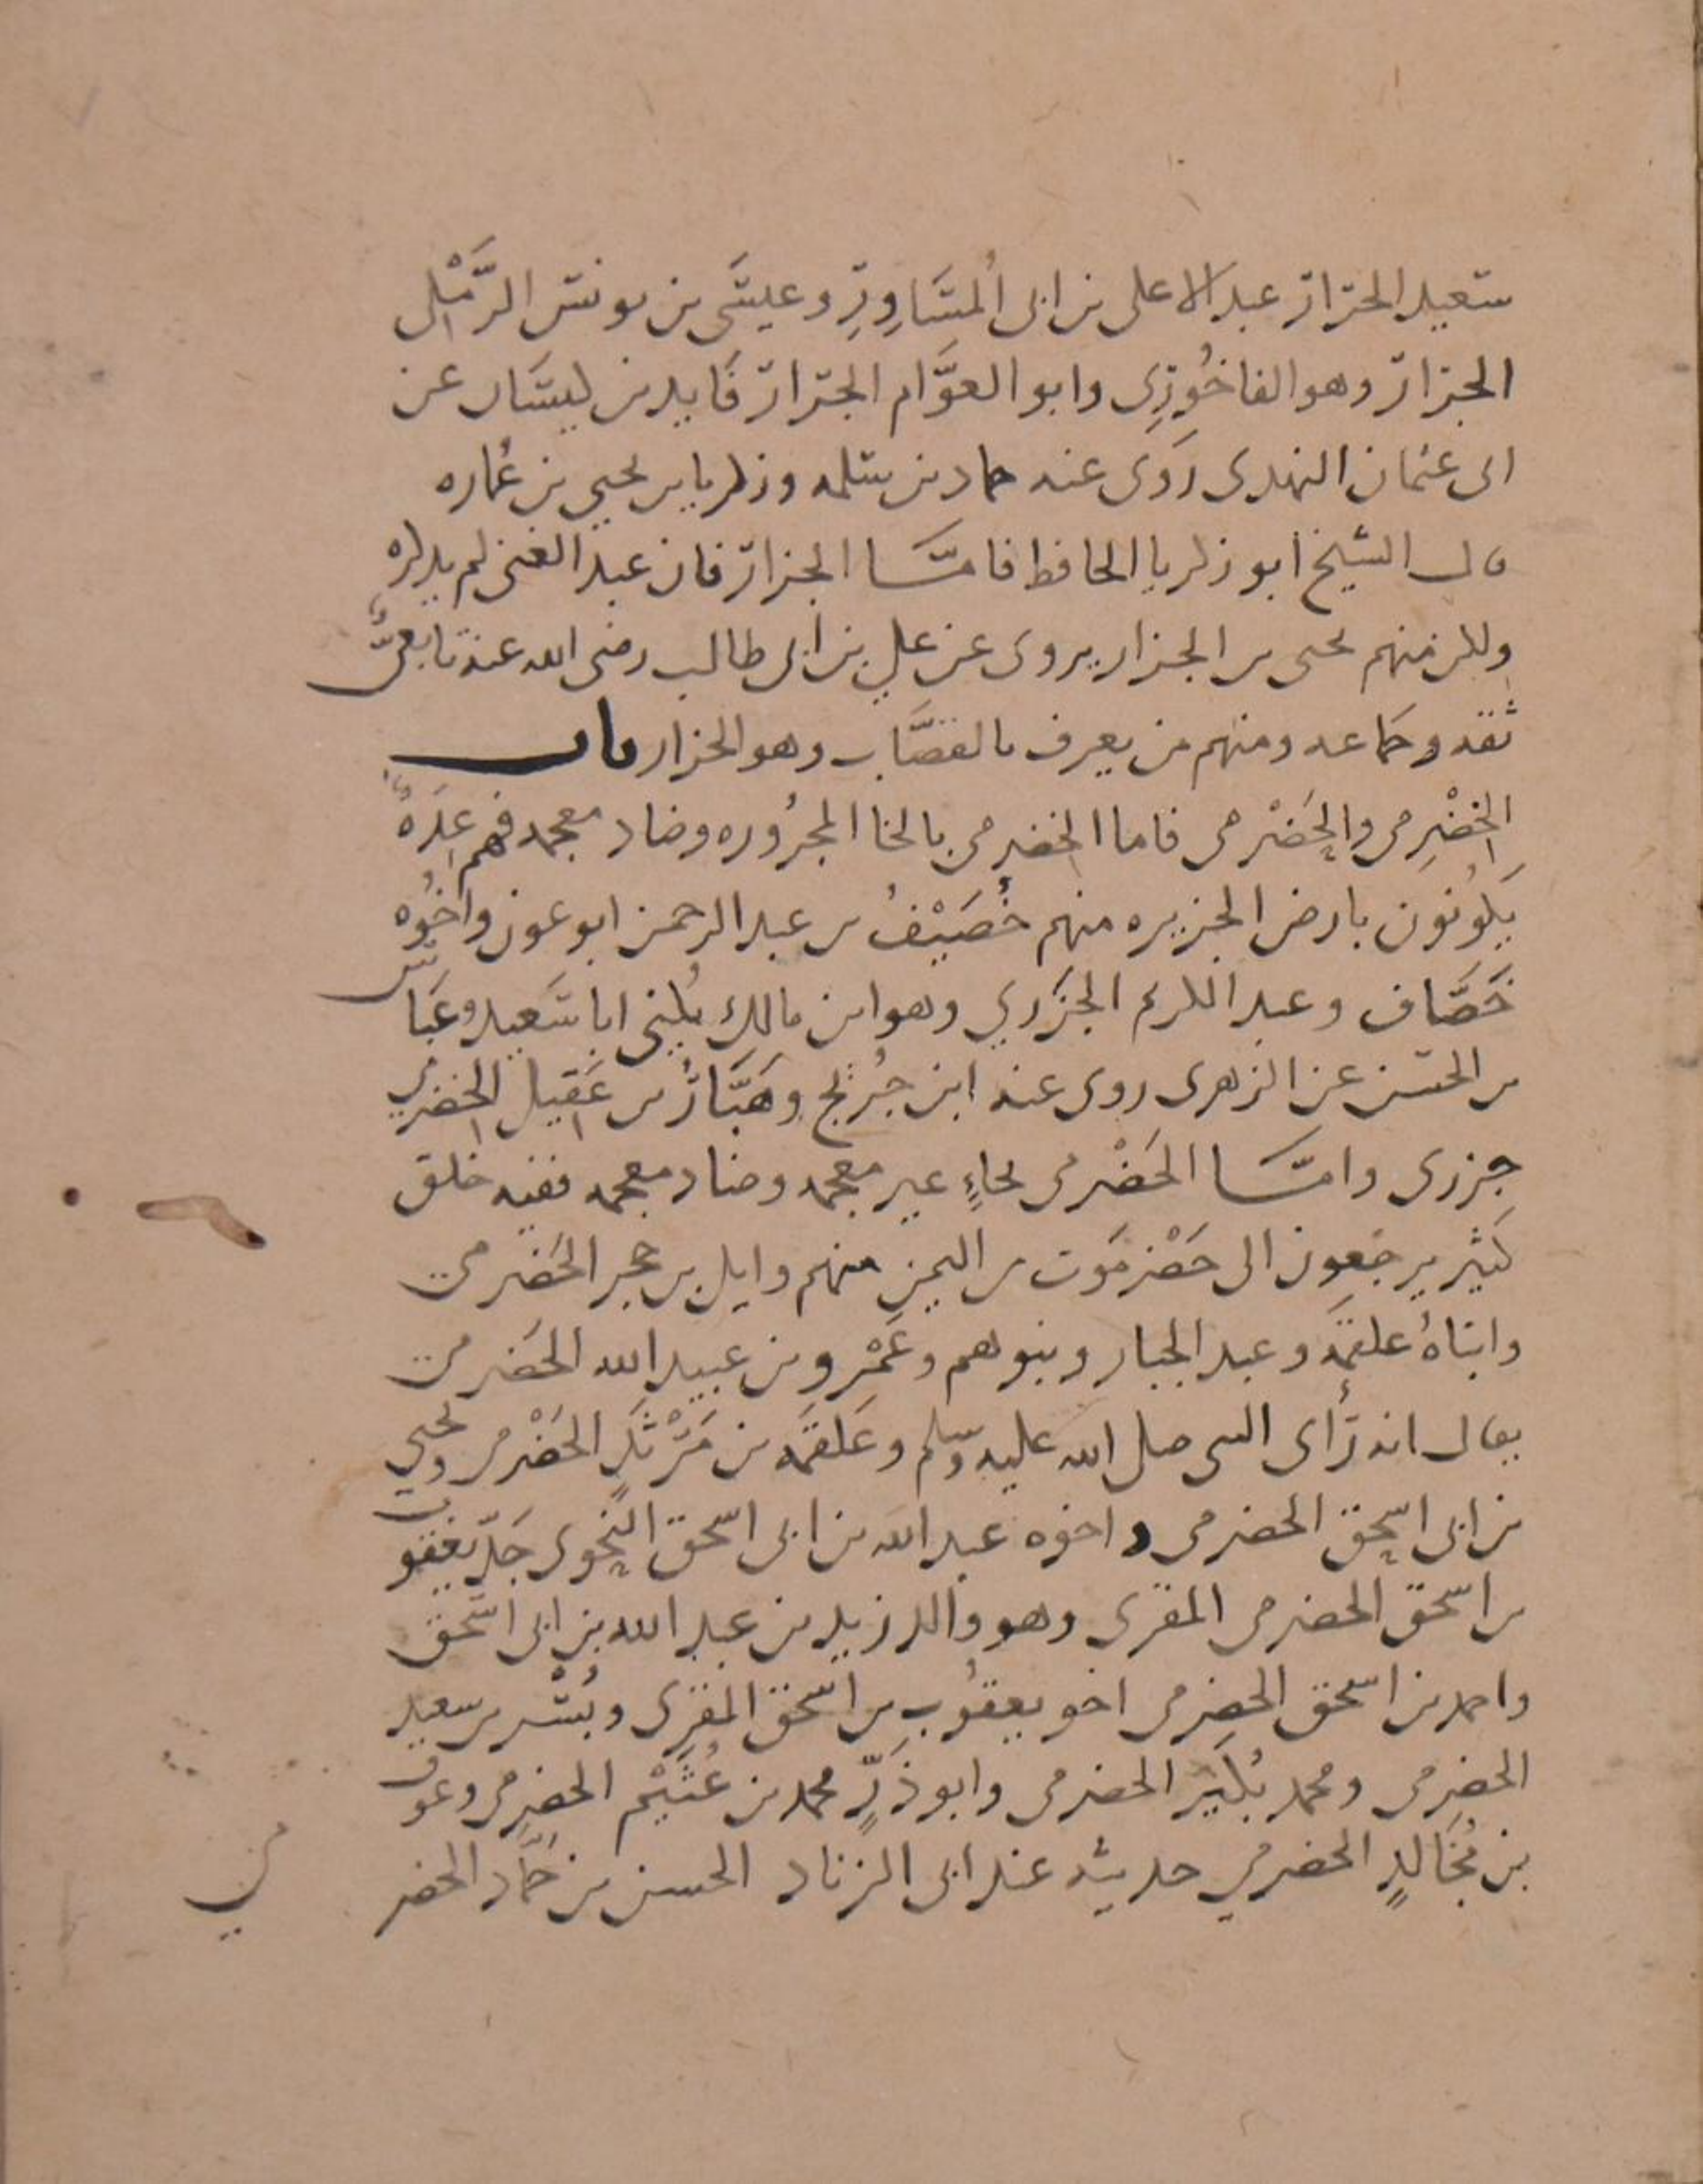 سعيد الجرار عبد الاعلى بن ابى المُسَاوِرِ وعيسَى بن يونس الرَّمْلى
الجرار وهو الفاخُورِى وابو العوَّام الجزار فَايد بن كيسَان عن
ابى عثمان النهدى رَوَى عنه حماد بن سلمه وزكريا بن يحيي بن عُماره
قال الشيخ ابو زكريا الحافظ فامَّا الجزار فان عبد الغنى لم يذكره
ولكن منهم يحيى بن الجزار يروى عن علي بن ابى طالب رضى الله عنه تابعىٌّ
ثقه وجماعه ومنهم من يعرف بالقصَّاب وهو الجزار باب
الخِضْرِمى والحَضْرمى فاما الخضرمى بالخا المجرُوره وضاد معجمه فهم عِدَةٌ
يَكُونُون بارض الجزيره منهم خُصَيْفُ بن عبد الرحمن ابو عون واخُوه
خَصَّاف وعبد الكريم الجزَري وهو ابن مالك يُكنى ابا سَعيد وعَبَّاس
بن الحسن عن الزهرى روى عنه ابن جُرَيْج وهَبَّارُ بن عَقيل الخضرمي
جزرى وامَّا الحَضْرمى بحاءٍ غير معجمه وضاد معجمه ففيه خلق
كثير يرجعون الى حَضْرمَوت من اليمن منهم وايل بن حجر الحَضرمى
وابناهُ علقمَه وعبد الجبار وبنوهم وعَمْرو بن عبيد الله الحَضرمى
يقال انه رَأى النبى صلى الله عليه وسلم وعَلقمَه بن مَرْثدٍ الحَضْرمى ويحيي
بن ابى اسحق الحضرمى واخوه عبد الله بن ابى اسحق النحوى جَدّ يعقوب
بن اسحق الحضرمى المقرى وهو والد زيد بن عبد الله بن ابى اسحق
واحمد بن اسحق الحضرمى اخو يعقُوب بن اسحق المقرى وبُسْر بن سعيد
الحضرمى ومحمد بُكَير الحضرمى وابو ذَرٍّ محمد بن عُثَيْم الحضرمى وعون
بن مُخَالدٍ الحضرمي حديثه عند ابى الزناد الحسن بن حمَّاد الحضر
مي